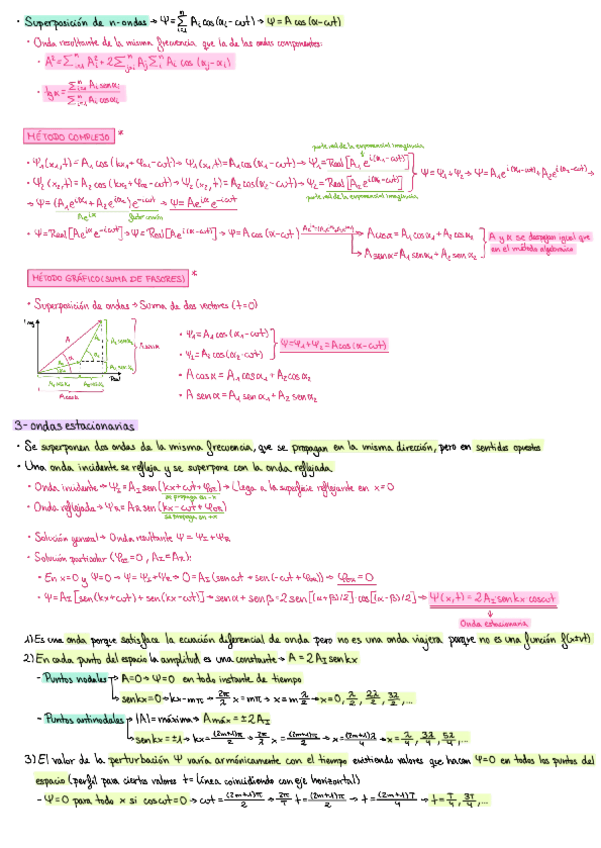 • Superposición de n-ondas → Ψ = Σⁿᵢ₌₁ Aᵢ cos (αᵢ - ωt) → Ψ = A cos (α - ωt)
• Onda resultante de la misma frecuencia que la de las ondas componentes:
• A² = Σⁿᵢ₌₁ Aᵢ² + 2 Σ Aⱼ Σ Aᵢ cos (αⱼ - αᵢ)
• tg α = Σⁿᵢ₌₁ Aᵢ sen αᵢ / Σⁿᵢ₌₁ Aᵢ cos αᵢ
MÉTODO COMPLEJO *
parte real de la exponencial imaginaria
• Ψ₁(x₁,t) = A₁ cos (kx₁ + φ₀₁ - ωt) → Ψ₁(x₁,t) = A₁ cos (α₁ - ωt) → Ψ₁ = Real [A₁ e^i(α₁-ωt)]
• Ψ₂(x₂,t) = A₂ cos (kx₂ + φ₀₂ - ωt) → Ψ₂(x₂,t) = A₂ cos (α₂ - ωt) → Ψ₂ = Real [A₂ e^i(α₂-ωt)] } Ψ = Ψ₁ + Ψ₂ → Ψ = A₁ e^i(α₁-ωt) + A₂ e^i(α₂-ωt) →
parte real de la exponencial imaginaria
→ Ψ = (A₁ e^iα₁ + A₂ e^iα₂) e^-iωt → Ψ = A e^iα e^-iωt
A e^iα factor común
• Ψ = Real [A e^iα e^-iωt] → Ψ = Real [A e^i(α-ωt)] → Ψ = A cos (α - ωt) → A cos α = A₁ cos α₁ + A₂ cos α₂
A sen α = A₁ sen α₁ + A₂ sen α₂ } A y α se despejan igual que en el método algebraico
MÉTODO GRÁFICO (SUMA DE FASORES) *
• Superposición de ondas → Suma de dos vectores (t=0)
• Ψ₁ = A₁ cos (α₁ - ωt)
• Ψ₂ = A₂ cos (α₂ - ωt) } Ψ = Ψ₁ + Ψ₂ = A cos (α - ωt)
• A cos α = A₁ cos α₁ + A₂ cos α₂
• A sen α = A₁ sen α₁ + A₂ sen α₂
Real
A cos α
A sen α
3- ondas estacionarias
• Se superponen dos ondas de la misma frecuencia, que se propagan en la misma dirección, pero en sentidos opuestos
• Una onda incidente se refleja y se superpone con la onda reflejada
• Onda incidente → Ψ_I = A_I sen (kx + ωt + φ₀I) → Llega a la superficie reflejante en x=0
se propaga en -x
• Onda reflejada → Ψ_R = A_R sen (kx - ωt + φ₀R)
se propaga en +x
• Solución general → Onda resultante Ψ = Ψ_I + Ψ_R
• Solución particular (φ₀I = 0, A_I = A_R):
• En x=0 y Ψ=0 → Ψ = Ψ_I + Ψ_R → 0 = A_I (sen ωt + sen (-ωt + φ₀R)) → φ₀R = 0
• Ψ = A_I [sen (kx + ωt) + sen (kx - ωt)] → sen α + sen β = 2 sen [(α+β)/2] cos [(α-β)/2] → Ψ(x,t) = 2 A_I sen kx cos ωt
Onda estacionaria
1) Es una onda porque satisface la ecuación diferencial de onda pero no es una onda viajera porque no es una función f(x±vt)
2) En cada punto del espacio la amplitud es una constante → A = 2 A_I sen kx
- Puntos nodales → A=0 → Ψ=0 en todo instante de tiempo
→ sen kx = 0 → kx = mπ → 2π/λ x = mπ → x = m λ/2 → x = 0, λ/2, 2λ/2, 3λ/2, ...
- Puntos antinodales → |A| = máxima → A máx = ±2 A_I
→ sen kx = ±1 → kx = (2m+1)π/2 → 2π/λ x = (2m+1)π/2 → x = (2m+1)λ/4 → x = λ/4, 3λ/4, 5λ/4, ...
3) El valor de la perturbación Ψ varía armónicamente con el tiempo existiendo valores que hacen Ψ=0 en todos los puntos del
espacio (perfil para ciertos valores t = línea coincidiendo con eje horizontal)
- Ψ=0 para todo x si cos ωt = 0 → ωt = (2m+1)π/2 → 2π/T t = (2m+1)π/2 → t = (2m+1)T/4 → t = T/4, 3T/4, ...